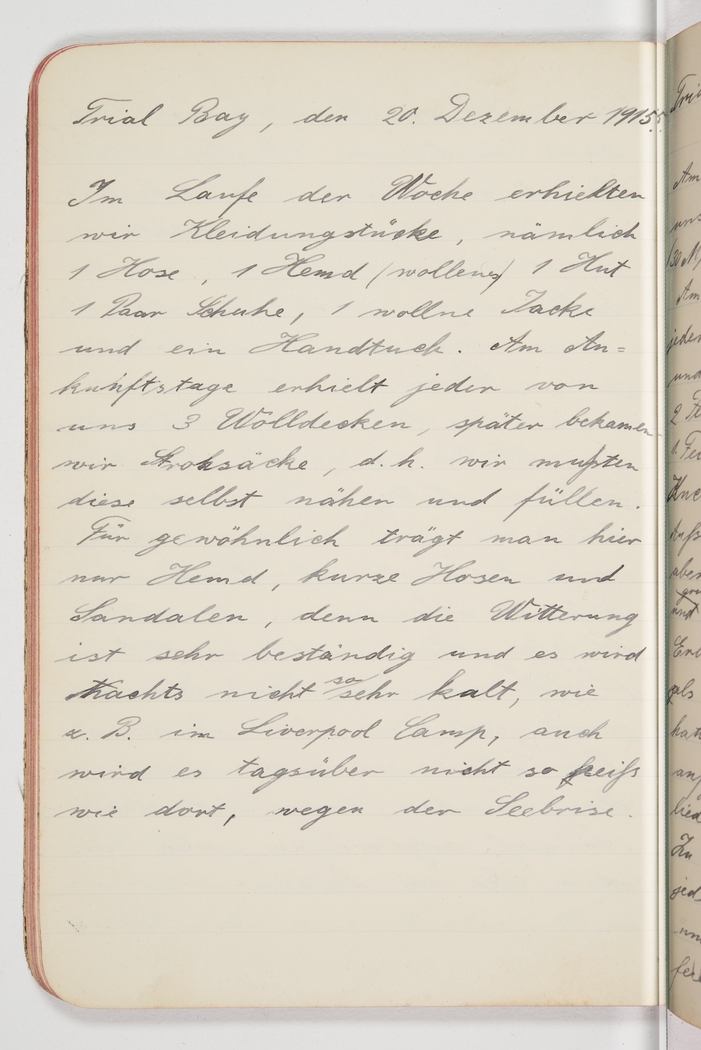 Trial Bay, den 20. Dezember 1915.
Im Laufe der Woche erhielten
wir Kleidungstücke, nämlich
1 Hose, 1 Hemd (wollenes) 1 Hut
1 Paar Schuhe, 1 wollne Jacke
und ein Handtuch. Am An=
kunftstage erhielt jeder von
uns 3 Wolldecken, später bekamen
wir Strohsäcke, d.h. wir mußten
diese selbst nähen und füllen.
Für gewöhnlich trägt man hier
nur Hemd, kurze Hosen und
Sandalen, denn die Witterung
ist sehr beständig und es wird
Nachts nicht so sehr kalt, wie
z. B. im Liverpool Camp, auch
wird es tagsüber nicht so heiß
wie dort, wegen der Seebrise.